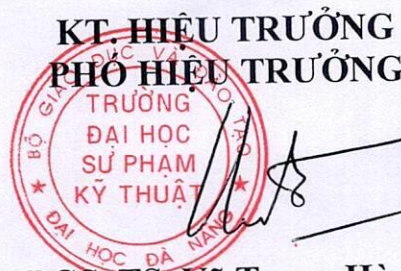 KT. HIỆU TRƯỞNG
PHÓ HIỆU TRƯỞNG
BỘ GIÁO DỤC VÀ ĐÀO TẠO
TRƯỜNG
ĐẠI HỌC
SƯ PHẠM
KỸ THUẬT
ĐẠI HỌC ĐÀ NẴNG